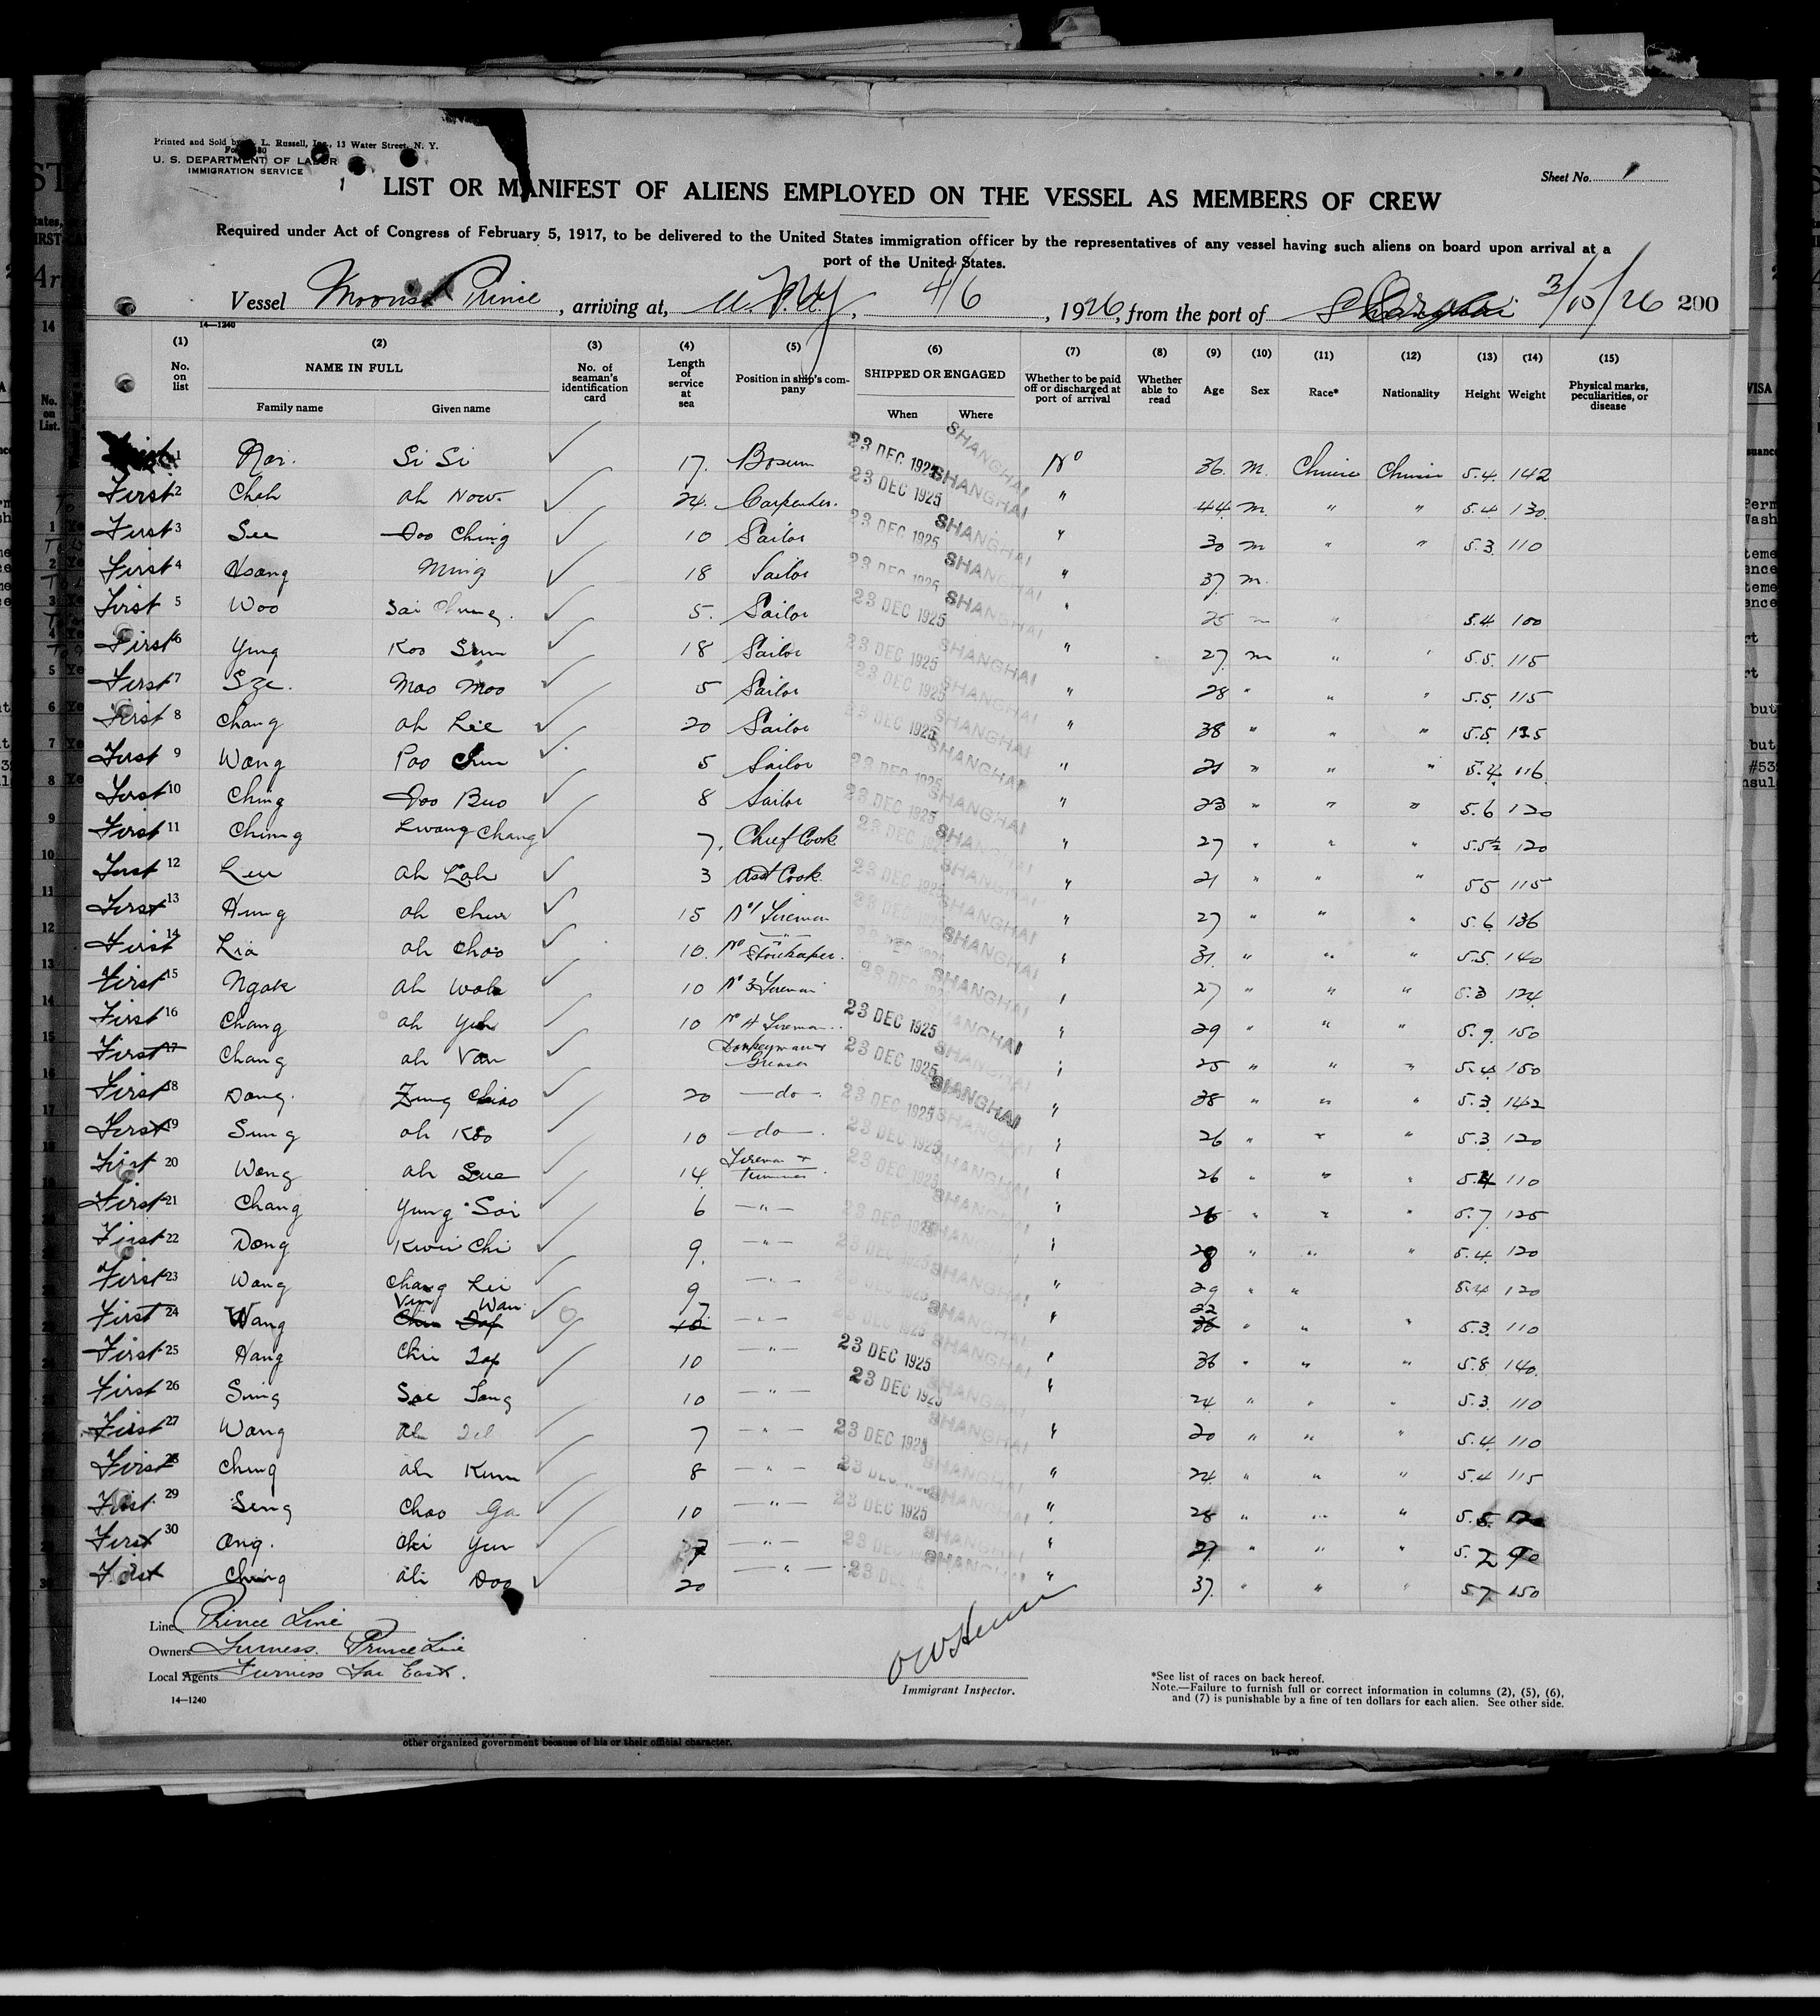 Printed and Sold by L. Russell, Inc., 13 Water Street, N. Y.
U. S. DEPARTMENT OF LABOR
IMMIGRATION SERVICE
1
Sheet No. 1
LIST OR MANIFEST OF ALIENS EMPLOYED ON THE VESSEL AS MEMBERS OF CREW
Required under Act of Congress of February 5, 1917, to be delivered to the United States immigration officer by the representatives of any vessel having such aliens on board upon arrival at a
port of the United States.
Vessel Prince, arriving at, 4/6, 1926, from the port of 3/15/26 200
14—1240
(1) (2) (3) (4) (5) (6) (7) (8) (9) (10) (11) (12) (13) (14) (15)
No. on list NAME IN FULL Family name Given name No. of seaman's identification card Length of service at sea Position in ship's company SHIPPED OR ENGAGED When Where Whether to be paid off or discharged at port of arrival Whether able to read Age Sex Race* Nationality Height Weight Physical marks, peculiarities, or disease
1 Si Si 17. Bosun 23 DEC 1925 SHANGHAI No 36. M. 5.4. 142
First 2 Chah ah Now. 24. Carpenter. 23 DEC 1925 SHANGHAI " 44 m. " " 5.4 130
First 3 See Doo Ching 10 Sailor 23 DEC 1925 SHANGHAI " 30 m " " 5.3 110
First 4 Ming 18 Sailor 23 DEC 1925 SHANGHAI " 37 m.
First 5 Woo Sai Chung. 5. Sailor 23 DEC 1925 SHANGHAI " 25 m " 5.4 100
First 6 Yung Koo Sun 18 Sailor 23 DEC 1925 SHANGHAI " 27 m " " 5.5. 115
First 7 Sze. Mao Moo 5 Sailor 23 DEC 1925 SHANGHAI " 28 " " " 5.5. 115
First 8 Chang ah Lee 20 Sailor 23 DEC 1925 SHANGHAI " 38 " " " 5.5.
First 9 Wong Poo Chun 5 Sailor SHANGHAI " 21 " " " 5.4 116
First 10 Ching Doo Buo 8 Sailor 23 DEC 1925 SHANGHAI " 23 " " " 5.6 120
First 11 Chung Lwang Chang 7. Chief Cook 23 DEC 1925 SHANGHAI " 27 " " " 5.5½ 120
First 12 ah Lah 3 Asst Cook 23 DEC 1925 SHANGHAI " 21 " " " 55 115
First 13 Hung ah 15 No 1 Fireman SHANGHAI " 27 " " " 5.6 136
First 14 Lia ah Choo 10. No Storekeeper. SHANGHAI " 31. " " " 5.5. 140
First 15 Ngok ah Woh 10 No 3 Fireman SHANGHAI " 27 " " " 5.3 124
First 16 Chang ah Yuh 10 No 4 Fireman 23 DEC 1925 SHANGHAI " 29 " " " 5.9. 150
First 17 Chang ah Van Donkeyman + Greaser 23 DEC 1925 SHANGHAI " 25 " " " 5.4 150
First 18 Dong. Zung Chiao 20 —do— 23 DEC 1925 SHANGHAI " 38 " " " 5.3. 142
First 19 Sung ah Koo 10 —do— 23 DEC 1925 SHANGHAI " 26 " " " 5.3 120
First 20 Wong ah Sue 14 Fireman + trimmer 23 DEC 1925 SHANGHAI " 26 " " " 5.4 110
First 21 Chang Yung Sai 6 —"— SHANGHAI " " " " 5.7. 125
First 22 Dong Kwei Chi 9. —"— 23 DEC 1925 SHANGHAI " 28 " " " 5.4. 120
First 23 Wang Chang Lii 9 —"— SHANGHAI " 29 " " 5.4 120
First 24 Wang Wan 7 —"— SHANGHAI " 22 " " " 5.3. 110
First 25 Hang Chii 10 —"— 23 DEC 1925 SHANGHAI " 36 " " " 5.8. 140.
First 26 Sung 10 —"— 23 DEC 1925 " 24 " " " 5.3. 110
First 27 Wang ah 7 —"— 23 DEC 1925 SHANGHAI " 20 " " " 5.4. 110
First 28 Ching ah Kum 8 —"— SHANGHAI " 24. " " " 5.4 115
First 29 Seng Choo Ga 10 —"— 23 DEC 1925 SHANGHAI " 28 " " "
First 30 Ong. Chi Yun 7 —"— 23 DEC SHANGHAI " 27. " " " 5.2 90
First Ching ah Doo 20 —"— 23 DEC SHANGHAI " 37. " " " 57. 150
Line Prince Line
Owners Furness. Prince Line
Local Agents Furness Far East.
14—1240
Immigrant Inspector.
*See list of races on back hereof.
Note.—Failure to furnish full or correct information in columns (2), (5), (6),
and (7) is punishable by a fine of ten dollars for each alien. See other side.
other organized government because of his or their official character.